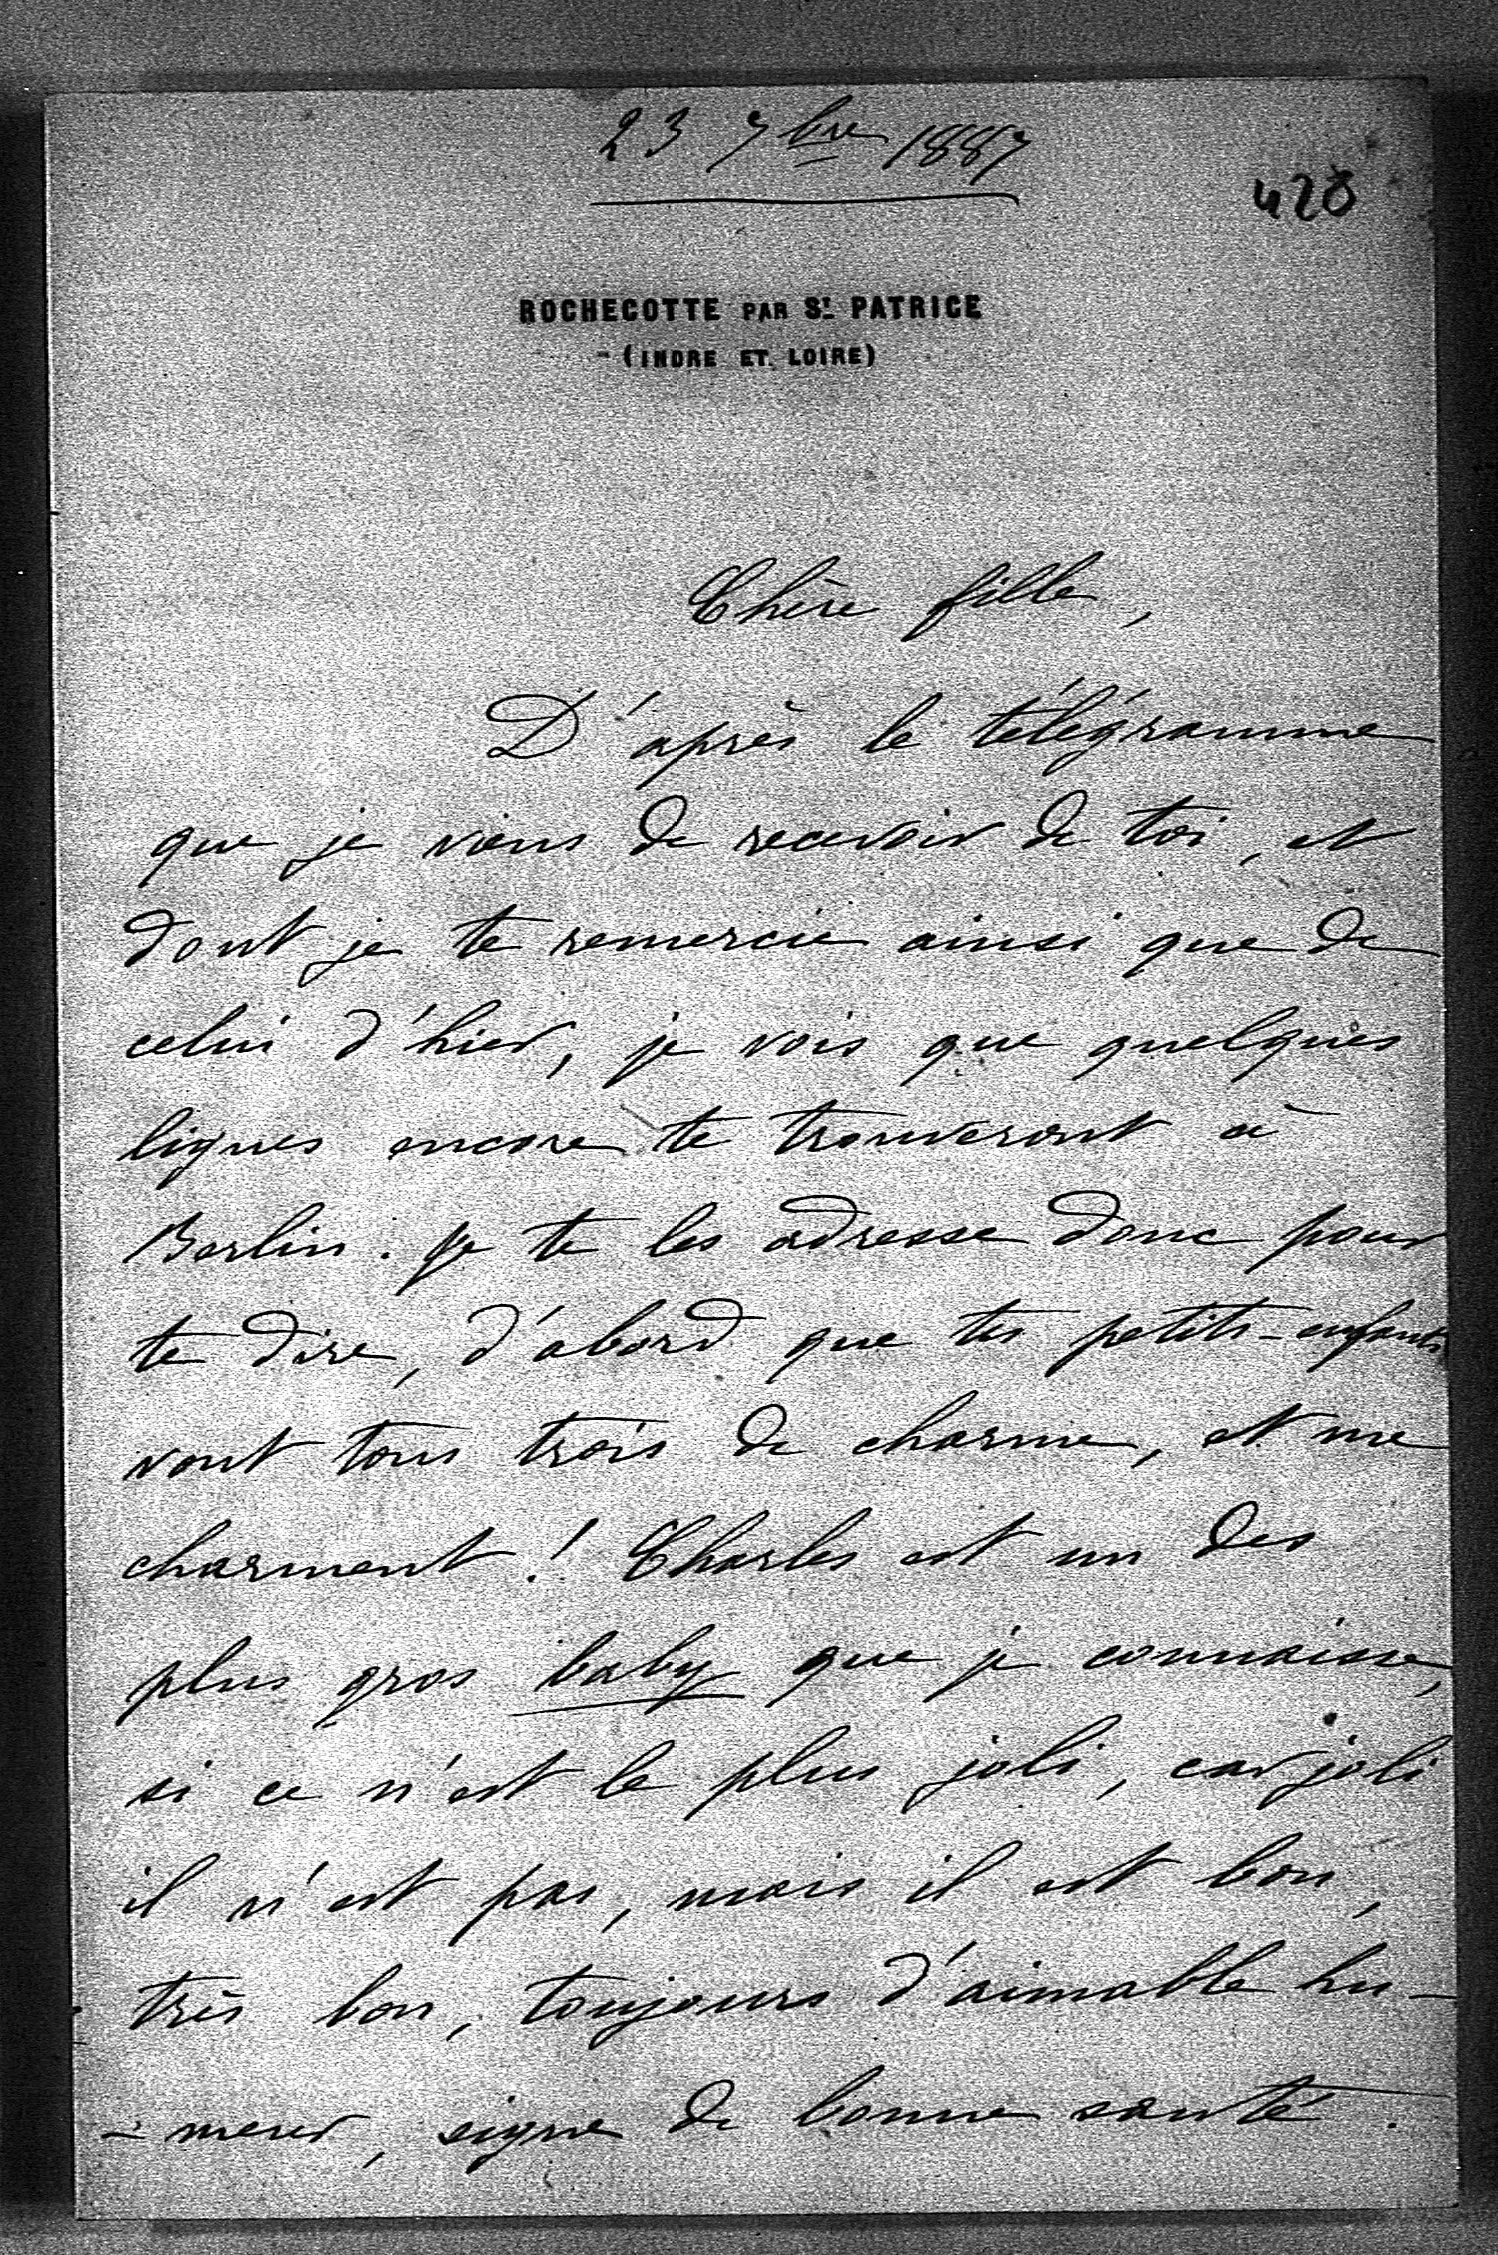 23 7bre 1887
428
ROCHECOTTE PAR St. PATRICE
(INDRE ET LOIRE)
Chère fille,
D'après le télégramme
que je viens de recevoir de toi, et
dont je te remercie ainsi que de
celui d'hier, je vois que quelques
lignes encore te trouveront à
Berlin. Je te les adresse donc pour
te dire, d'abord que tes petits-enfants
vont tous trois de charme, et me
charment! Charles est un des
plus gros baby que je connaisse,
si ce n'est le plus joli, car joli
il n'est pas, mais il est bon,
très bon, toujours d'aimable hu-
-meur, signe de bonne santé.